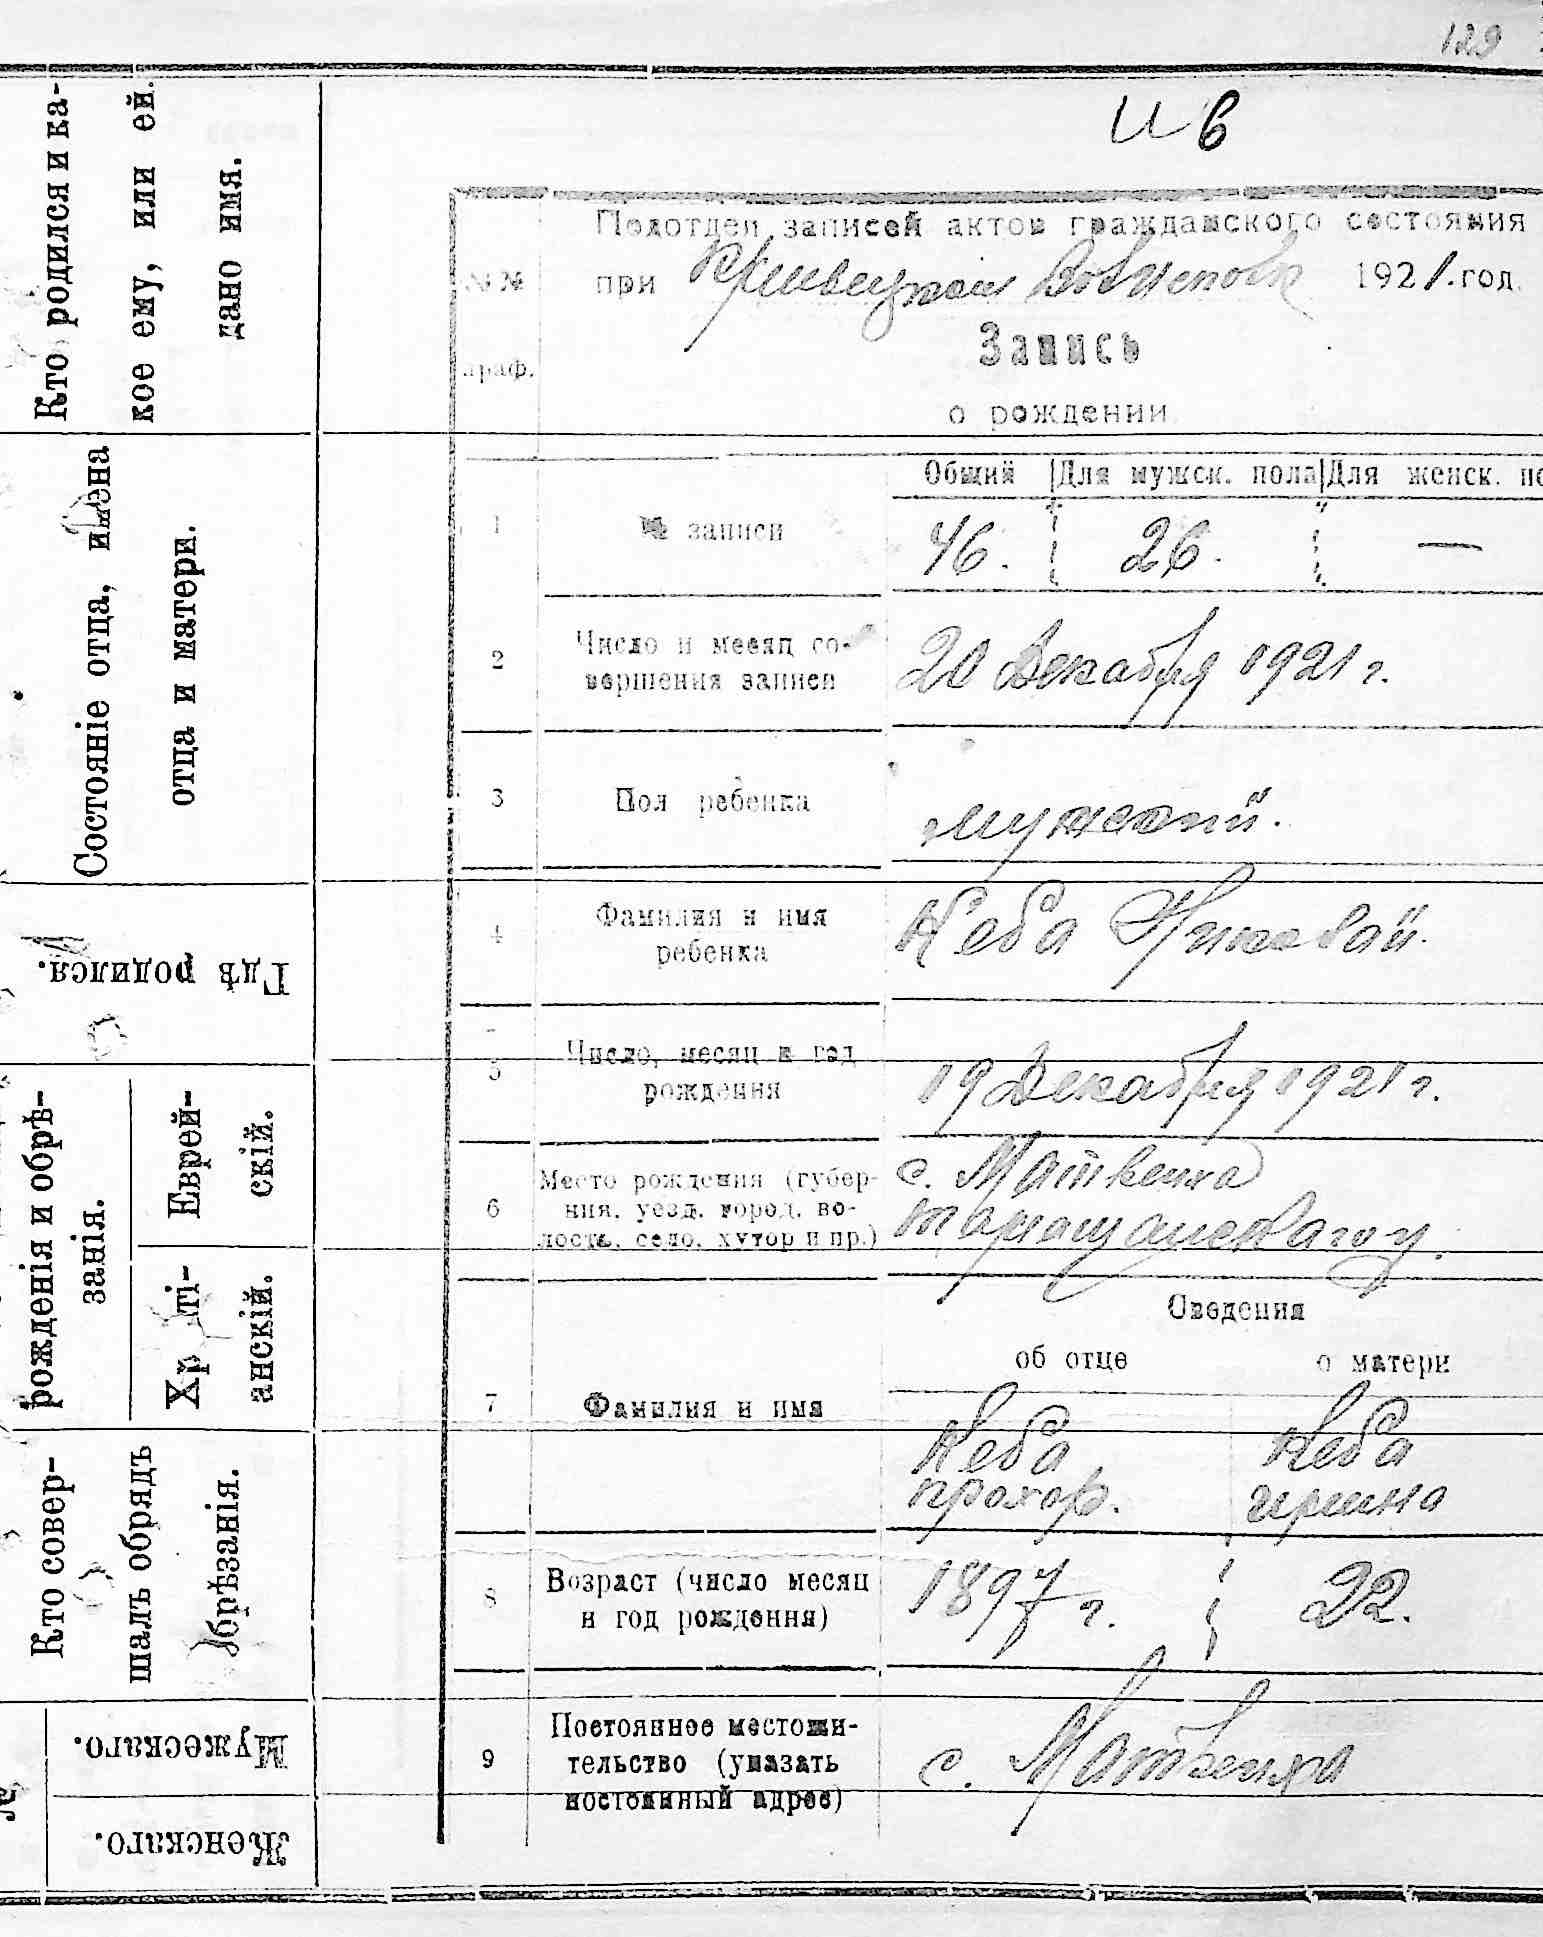 129
Кто родился и ка-
кое ему, или ей
дано имя.
Состояніе отца, имена
отца и матери.
Гдѣ родился.
рожденія и обрѣ-
занія.
Еврей-
скій.
Хр ті-
анскій.
Кто совер-
шалъ обрядъ
обрѣзанія.
Мужескаго.
Женскаго.
Подотдел записей актов гражданского состояния
№№ при 1921.год.
араф.
Запись
о рождении
Общий Для мужск. пола Для женск. по
1 № записи 46. 26. —
2 Число и месяц со-
вершения записи
20 Декабря 1921 г.
3 Пол ребенка мужский.
4 Фамилия и имя
ребенка
Неба Николай.
5 Число, месяц и год
рождения
19 Декабря 1921 г.
6 Место рождения (губер-
ния, уезд, город, во-
лость, село, хутор и пр.)
с. Матвеиха
Таращанскаго у.
Сведения
об отце о матери
7 Фамилия и имя
Неба Неба
прохор. ирина
8 Возраст (число месяц
и год рождения)
1897 г. 22.
9 Постоянное местожи-
тельство (указать
постоянный адрес)
с. Матвеиха